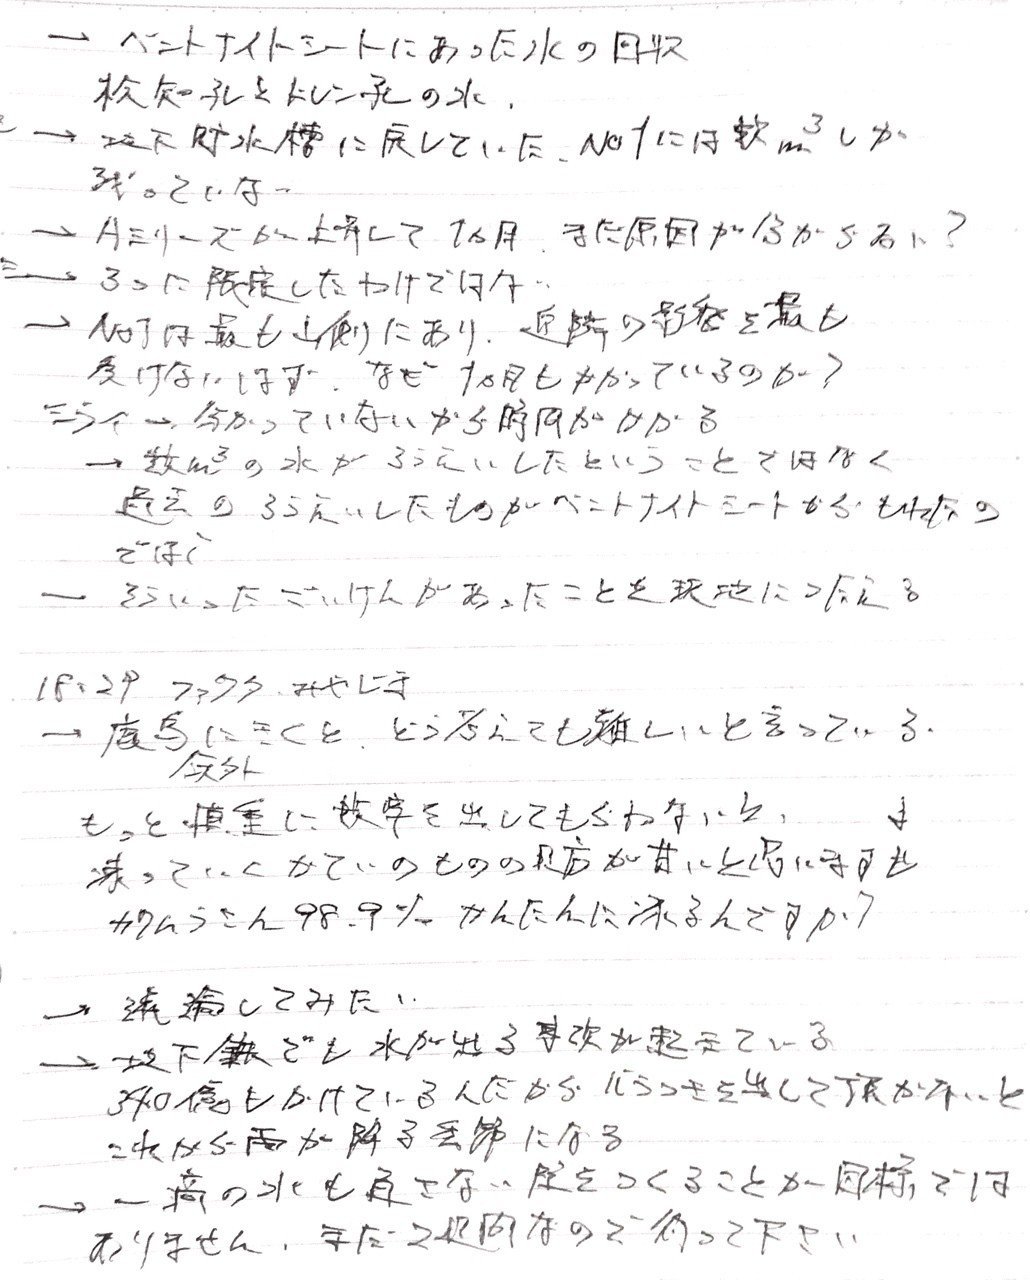 → ベントナイトシートにあった水の回収
検知孔とドレン孔の水.
→ 地下貯水槽に戻していた. No1には数m³しか
残っていない
→ Aシリーズが上昇して 1ヵ月. まだ原因が分からない?
→ 3つに限定したわけではない
→ No1は最も山側にあり. 近隣の影響を最も
受けないはず. なぜ 1ヵ月もかかっているのか?
→ 分かっていないから時間がかかる
→ 数m³の水がろうえいしたということではなく
過去のろうえいしたものがベントナイトシートからもれたの
では
そういったごいけんがあったことを現地につたえる
18:29 ファクタ みやじま
→ 鹿島にきくと. どう考えても難しいと言っている.
もっと慎重に数字を出してもらわないと.
凍っていくかていのものの見方が甘いと思いますも
98.9% かんたんに凍るんですか?
→ 議論してみたい
→ 地下鉄でも水が出る事故が起きている
340億もかけているんだから 出して頂かないと
これから雨が降る季節になる
→ 一滴の水も 壁をつくることが目標では
ありません. まだ2週間なので待って下さい